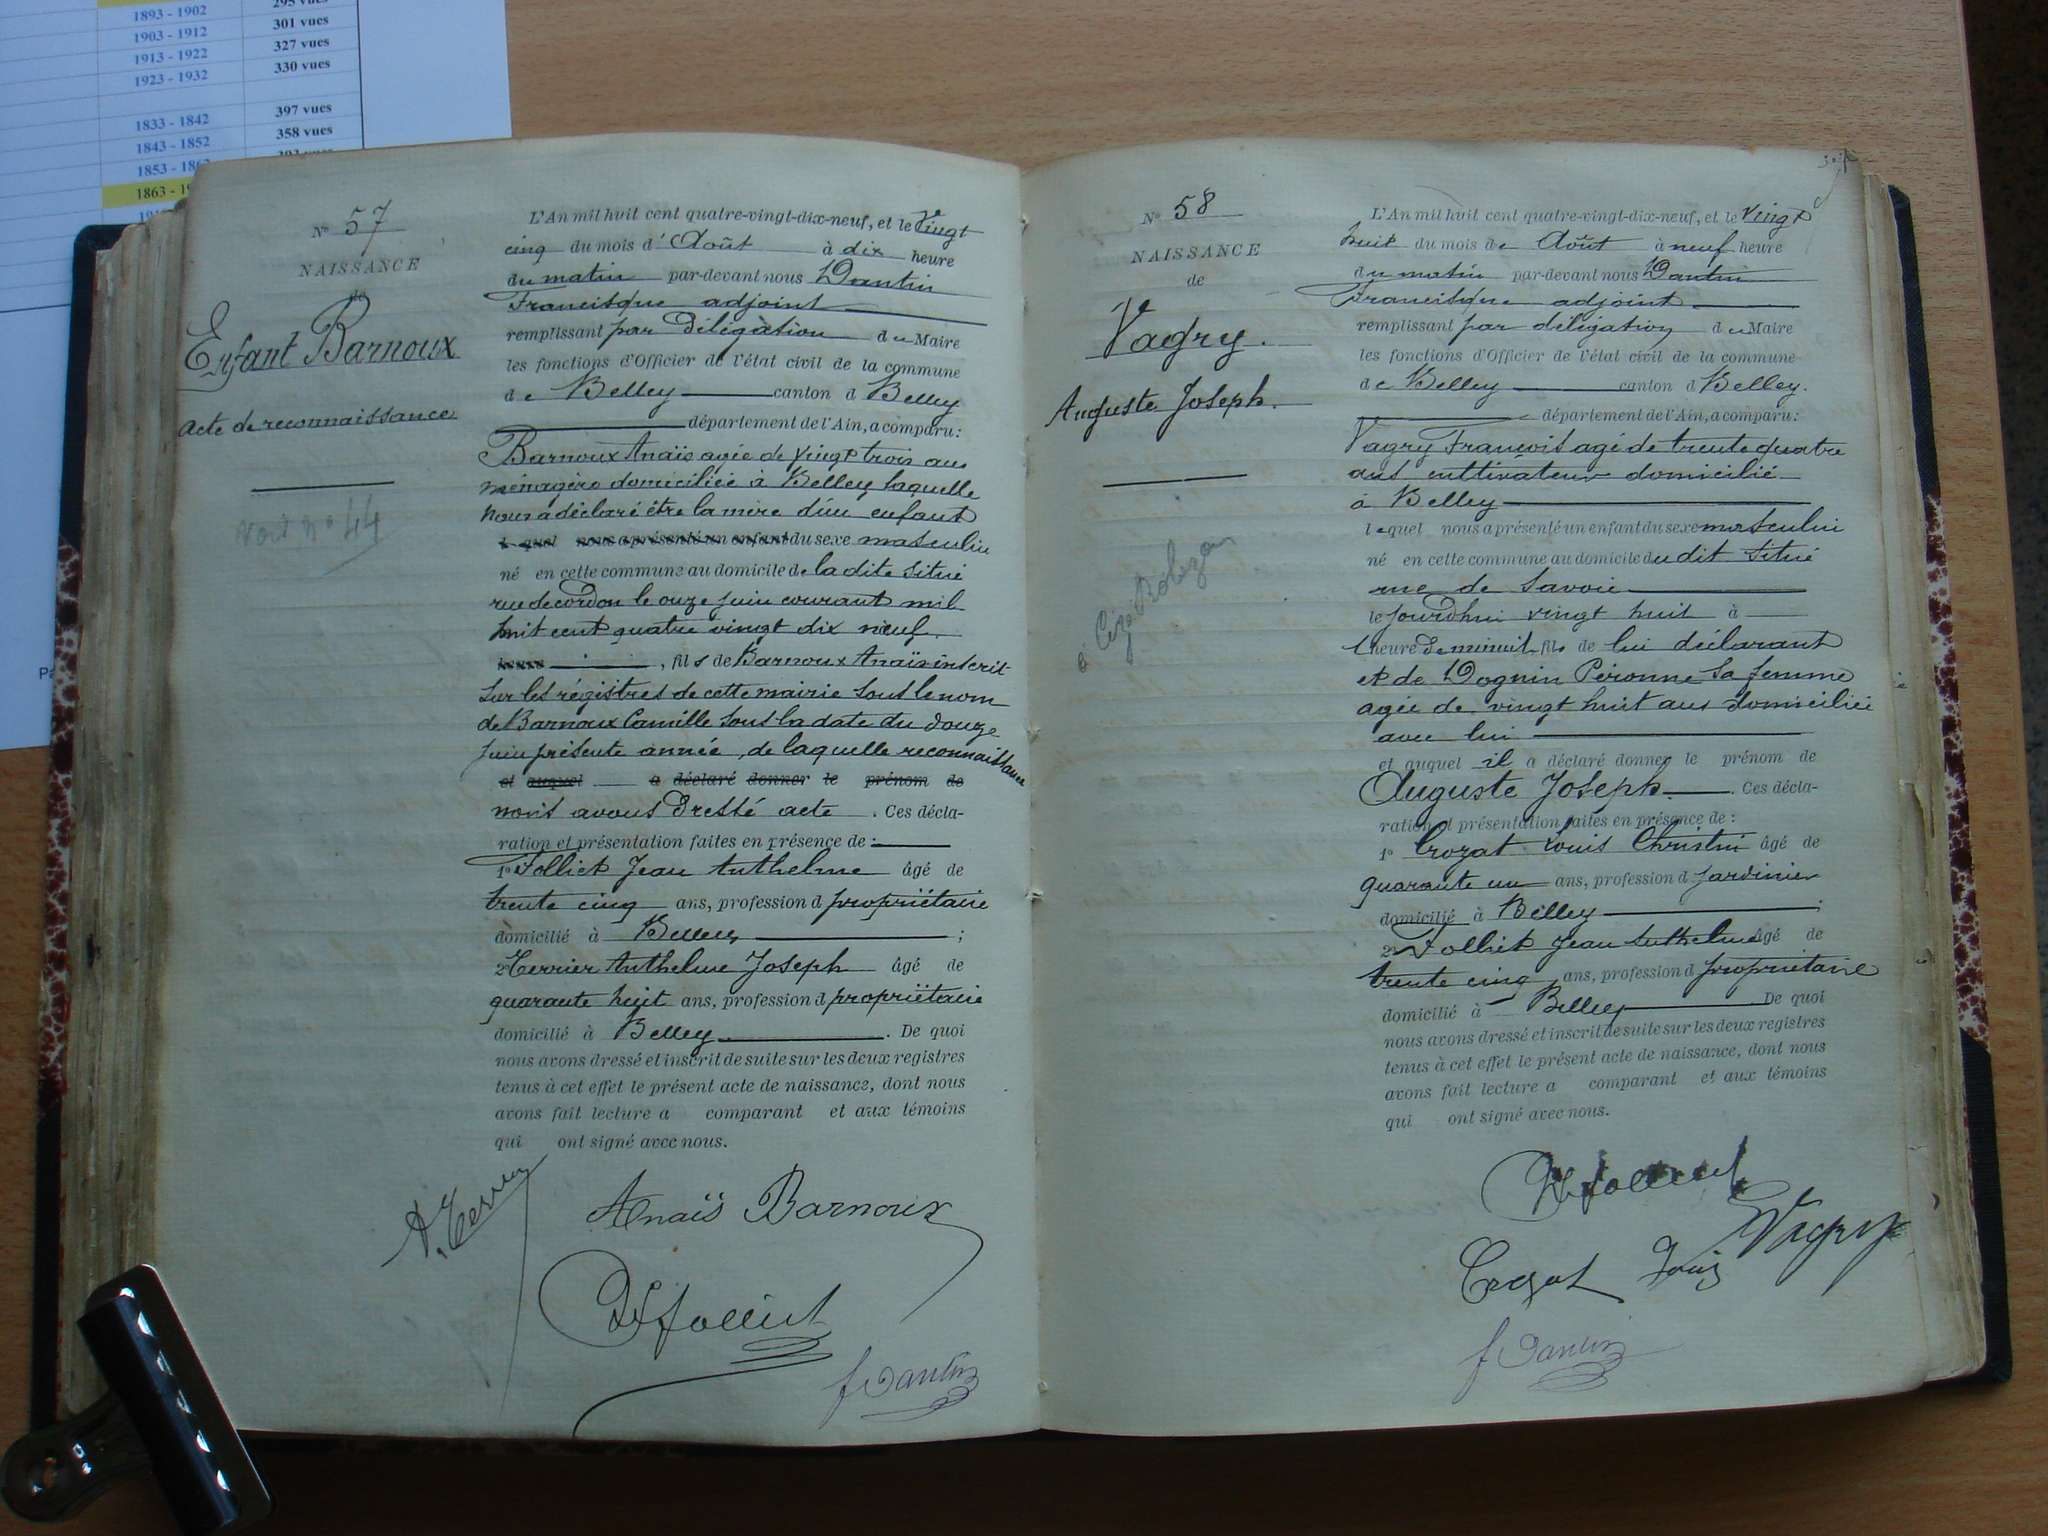 1893 - 1902 295 vues
1903 - 1912 301 vues
1913 - 1922 327 vues
1923 - 1932 330 vues
1833 - 1842 397 vues
1843 - 1852 358 vues
1853 - 186
1863 - 1
N° 57
NAISSANCE
de
Enfant Barnoux
acte de reconnaissance
voir n° 44
L'An mil huit cent quatre-vingt-dix-neuf, et le Vingt
cinq du mois d'Août à dix heure
du matin par-devant nous Dantin
Francisque adjoint
remplissant par délégation du Maire
les fonctions d'Officier de l'état civil de la commune
de Belley canton d Belley
département de l'Ain, a comparu :
Barnoux Anaïs agée de vingt trois ans
ménagère domiciliée à Belley laquelle
nous a déclaré être la mère d'un enfant
l quel nous a présenté un enfant du sexe masculin
né en cette commune au domicile de la dite situé
rue de cordon le onze juin courant mil
huit cent quatre vingt dix neuf.
heure , fils de Barnoux Anaïs inscrit
sur les régistres de cette mairie sous le nom
de Barnoux Camille sous la date du douze
juin présente année, de laquelle reconnaissance
et auquel a déclaré donner le prénom de
nous avons dressé acte . Ces décla-
ration et présentation faites en présence de :
1° Folliet Jean Anthelme âgé de
trente cinq ans, profession d propriétaire
domicilié à Belley ;
2° Terrier Anthelme Joseph âgé de
quarante huit ans, profession d propriétaire
domicilié à Belley . De quoi
nous avons dressé et inscrit de suite sur les deux registres
tenus à cet effet le présent acte de naissance, dont nous
avons fait lecture a comparant et aux témoins
qui ont signé avec nous.
A. Terrier
Anaïs Barnoux
Folliet
f Dantin
N° 58
NAISSANCE
de
Vagry.
Auguste Joseph.
L'An mil huit cent quatre-vingt-dix-neuf, et le vingt
huit du mois de Août à neuf heure
du matin par-devant nous Dantin
Francisque adjoint
remplissant par délégation du Maire
les fonctions d'Officier de l'état civil de la commune
de Belley canton d Belley.
département de l'Ain, a comparu :
Vagry François agé de trente quatre
ans cultivateur domicilié
à Belley
lequel nous a présenté un enfant du sexe masculin
né en cette commune au domicile du dit situé
rue de Savoie
le jourd'hui vingt huit à
1 heure de minuit fils de lui déclarant
et de Dognin Péronne sa femme
agée de vingt huit ans domiciliée
avec lui
et auquel il a déclaré donner le prénom de
Auguste Joseph. . Ces décla-
ration et présentation faites en présence de :
1° Crozat Louis Christin âgé de
quarante un ans, profession d jardinier
domicilié à Belley ;
2° Folliet Jean Anthelme âgé de
trente cinq ans, profession d propriétaire
domicilié à Belley De quoi
nous avons dressé et inscrit de suite sur les deux registres
tenus à cet effet le présent acte de naissance, dont nous
avons fait lecture a comparant et aux témoins
qui ont signé avec nous.
Folliet
Vagry
Crozat Louis
f Dantin